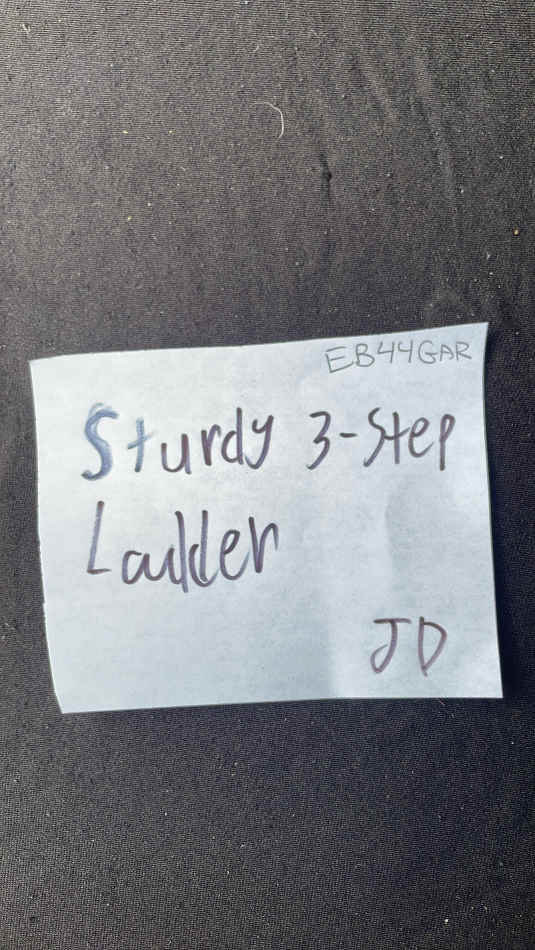 EB44GAR
Sturdy 3-Step
Ladder
JD